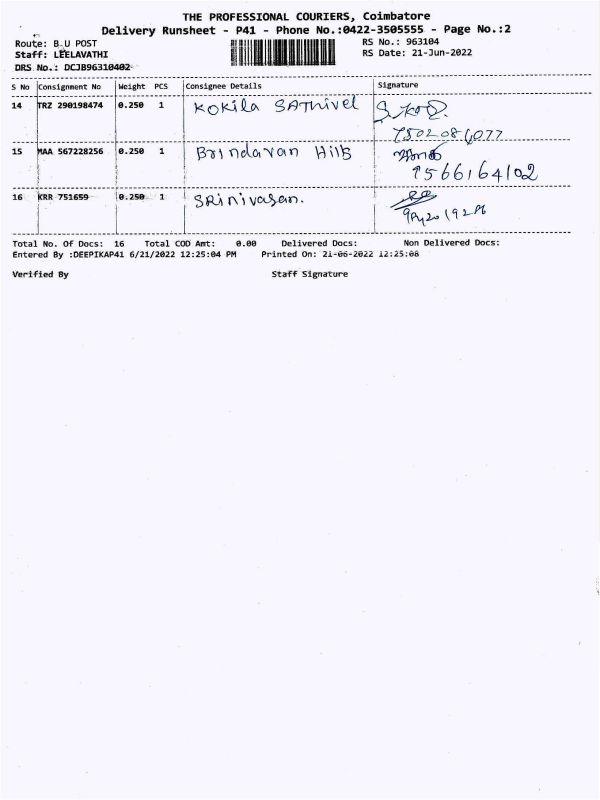 THE PROFESSIONAL COURIERS, Coimbatore
Delivery Runsheet - P41 - Phone No.:0422-3505555 - Page No.:2
Route: B U POST RS No.: 963104
Staff: LEELAVATHI RS Date: 21-Jun-2022
DRS No.: DCJB96310402
S No Consignment No Weight PCS Consignee Details Signature
14 TRZ 290198474 0.250 1 Kokila SAThivel
7502086077
15 MAA 567228256 0.250 1 Brindavan Hills
9566164102
16 KRR 751659 0.250 1 SRinivasan.
Total No. Of Docs: 16 Total COD Amt: 0.00 Delivered Docs: Non Delivered Docs:
Entered By :DEEPIKAP41 6/21/2022 12:25:04 PM Printed On: 21-06-2022 12:25:08
Verified By Staff Signature